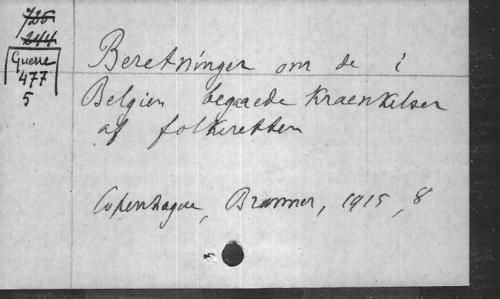 726
244
Guerre
477
5
Beretninger om de i
Belgien begaaede Kraenkelser
af folkeretten
Copenhague, Branner, 1915, 8°